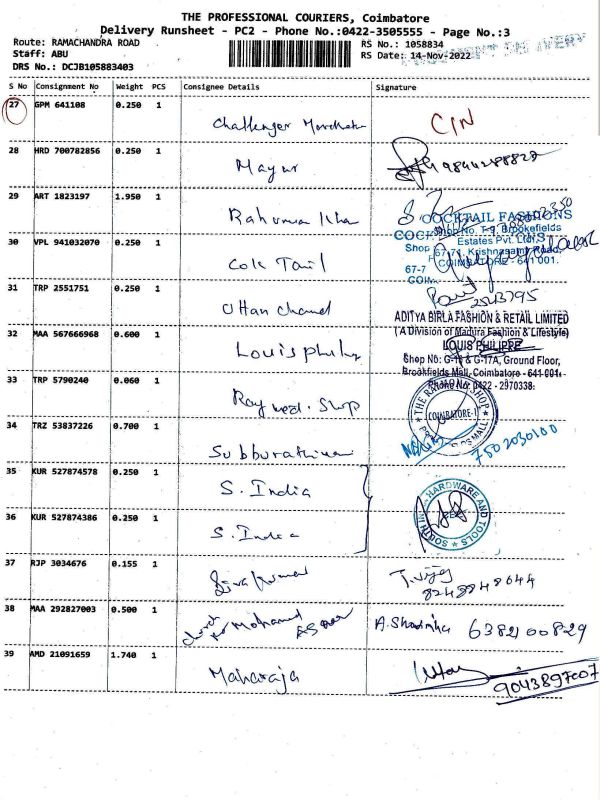 THE PROFESSIONAL COURIERS, Coimbatore
Delivery Runsheet - PC2 - Phone No.:0422-3505555 - Page No.:3
Route: RAMACHANDRA ROAD RS No.: 1058834
Staff: ABU RS Date: 14-Nov-2022
DRS No.: DCJB105883403
S No Consignment No Weight PCS Consignee Details Signature
27 GPM 641108 0.250 1
Challenger CIN
28 HRD 700782856 0.250 1
Mayur
29 ART 1823197 1.950 1
COCKTAIL FASHIONS
Shop No. T-9, Brookefields
30 VPL 941032070 0.250 1 Estates Pvt. Ltd.,
67-71, Krishnasamy Road,
COIMBATORE - 641 001.
Cok Tail
31 TRP 2551751 0.250 1
2543795
Uttan Chand
ADITYA BIRLA FASHION & RETAIL LIMITED
32 MAA 567666968 0.600 1 (A Division of Madura Fashion & Lifestyle)
LOUIS PHILIPPE
Louis Philip Shop No: G-16 & G-17A, Ground Floor,
Brookfields Mall, Coimbatore - 641 001.
33 TRP 5790240 0.060 1 Phone No: 0422 - 2970338
Raymed. Shop THE RAYMOND SHOP
COIMBATORE-1
34 TRZ 53837226 0.700 1
7502030100
35 KUR 527874578 0.250 1
S. India HARDWARE AND TOOLS
36 KUR 527874386 0.250 1
S. India SOUTH INDIA
37 RJP 3034676 0.155 1
Sivakumar T. Vijay
8248848644
38 MAA 292827003 0.500 1
Mohamed 6382100829
39 AMD 21091659 1.740 1
Maharaja
9043897007